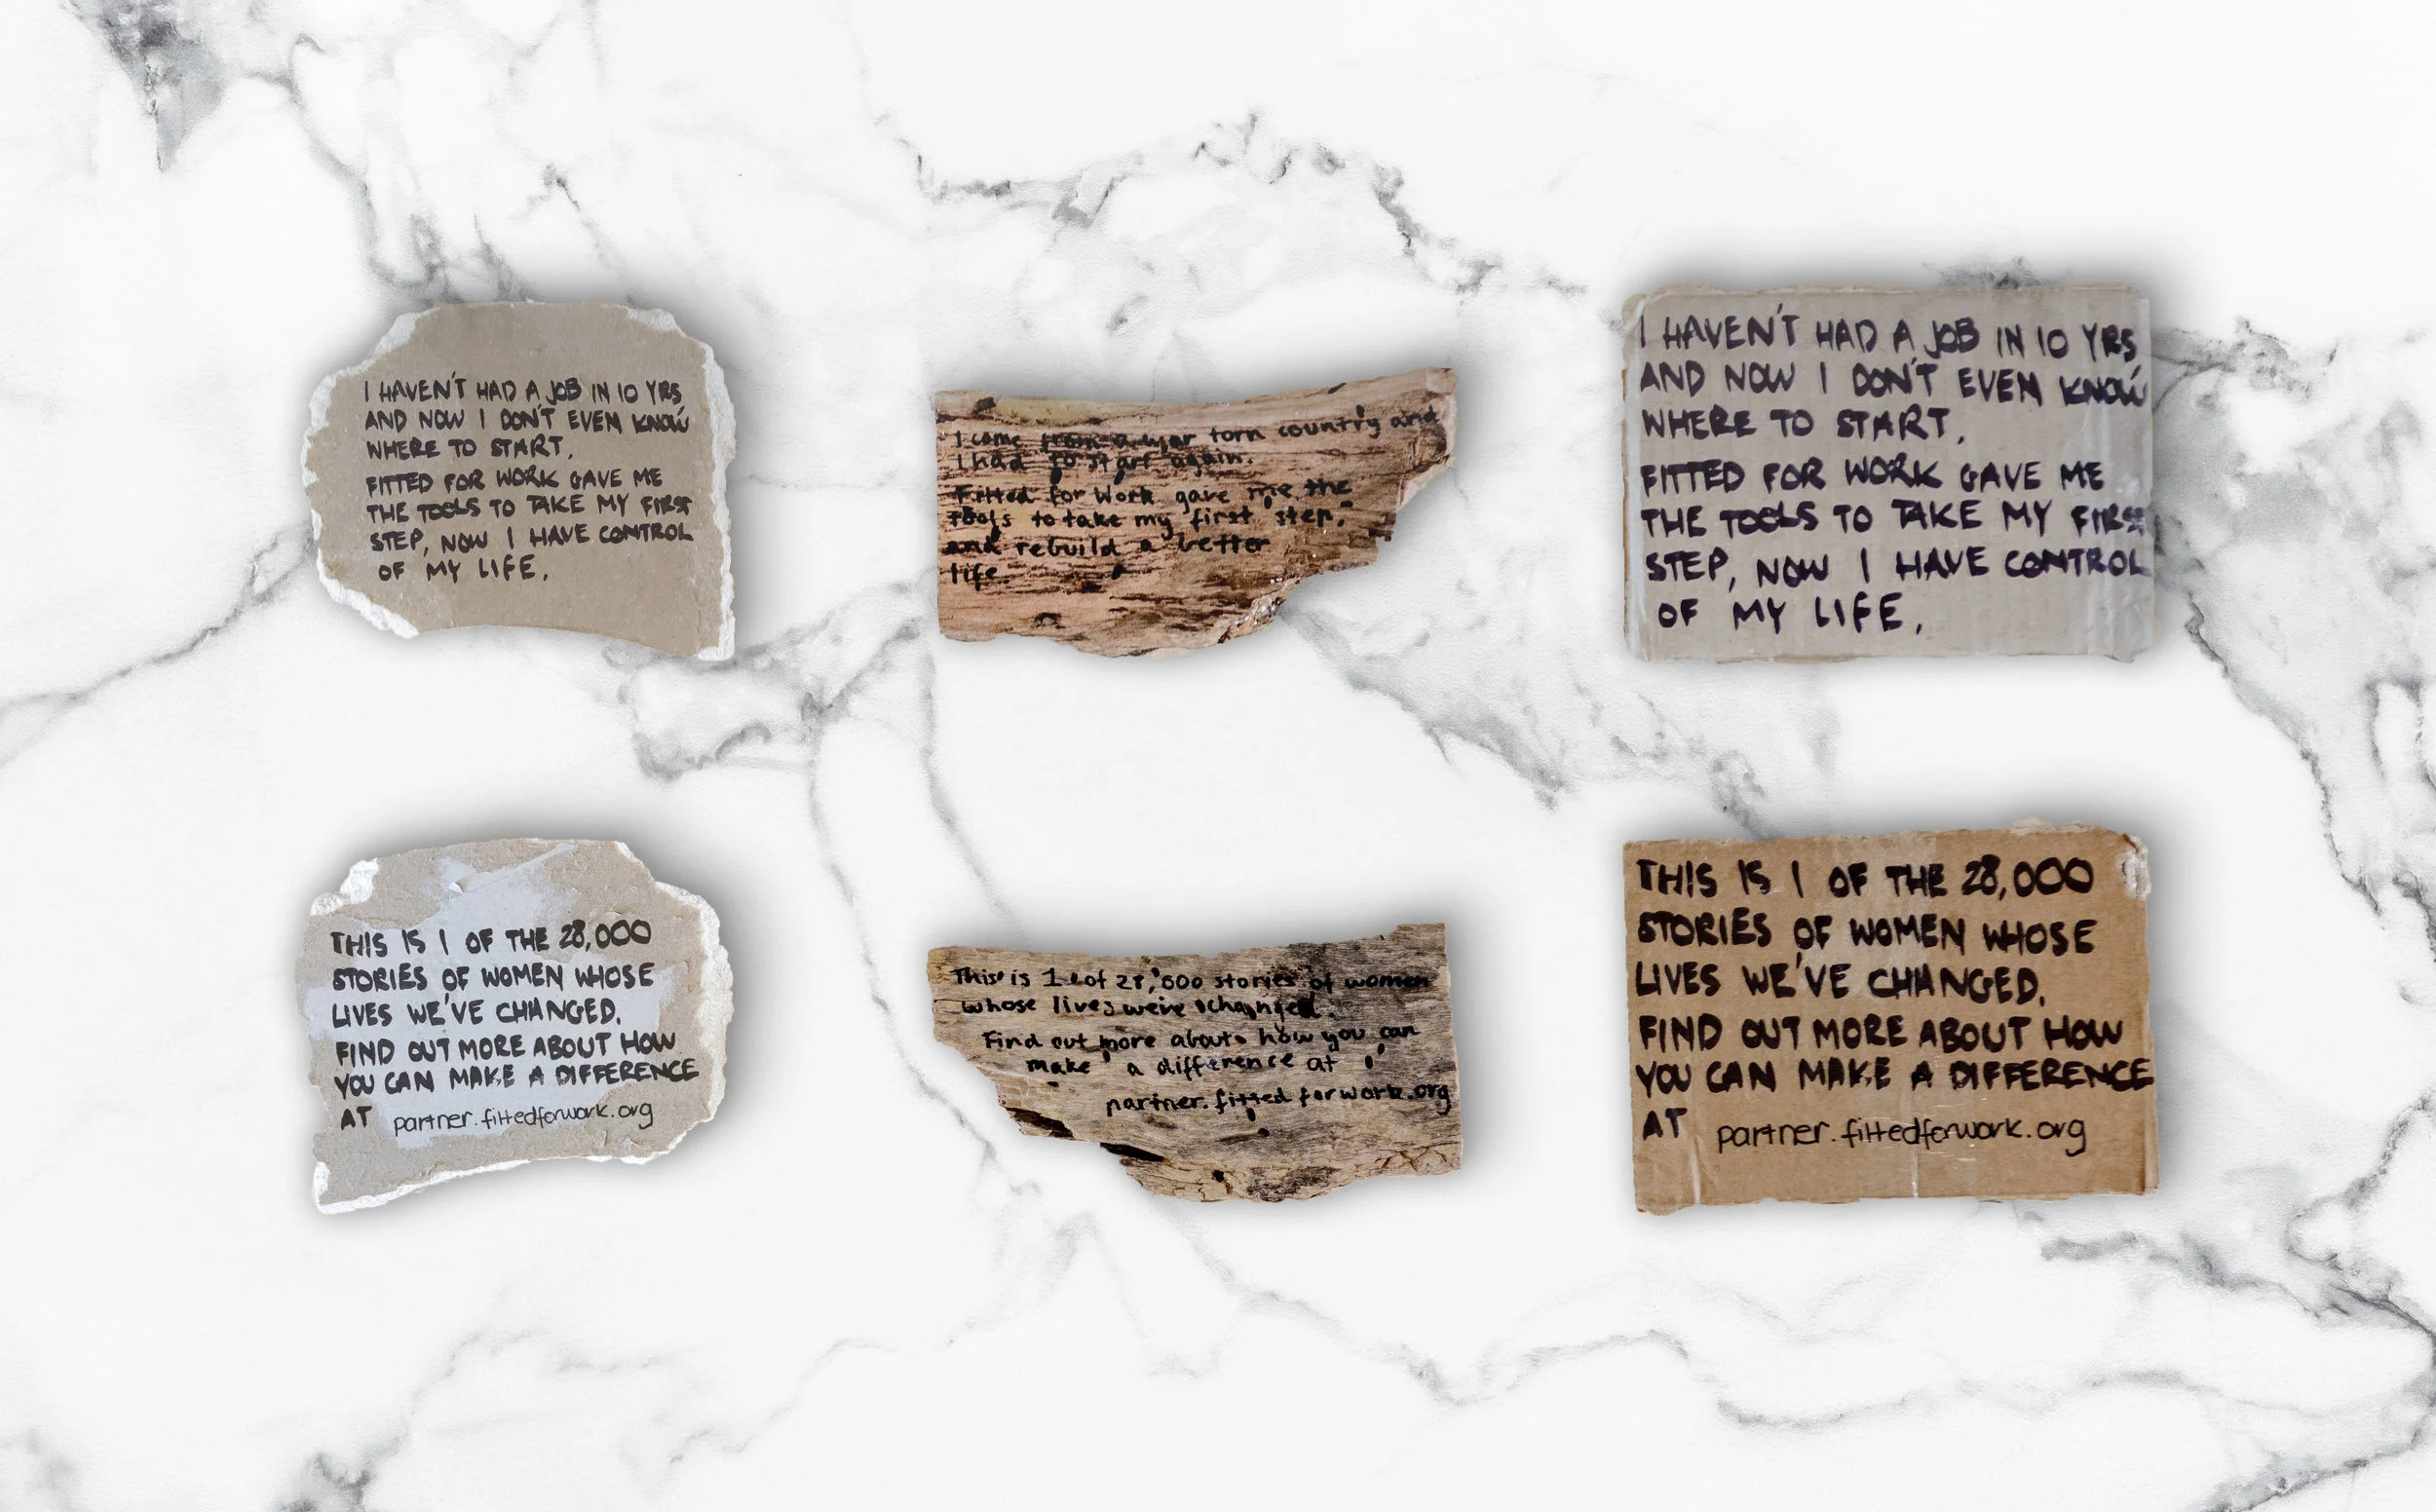 I HAVEN'T HAD A JOB IN 10 YRS
AND NOW I DON'T EVEN KNOW
WHERE TO START.
FITTED FOR WORK GAVE ME
THE TOOLS TO TAKE MY FIRST
STEP, NOW I HAVE CONTROL
OF MY LIFE.
I come from a war torn country and
I had to start again.
Fitted for Work gave me the
tools to take my first step,
and rebuild a better
life.
I HAVEN'T HAD A JOB IN 10 YRS
AND NOW I DON'T EVEN KNOW
WHERE TO START.
FITTED FOR WORK GAVE ME
THE TOOLS TO TAKE MY FIRST
STEP, NOW I HAVE CONTROL
OF MY LIFE.
THIS IS 1 OF THE 28,000
STORIES OF WOMEN WHOSE
LIVES WE'VE CHANGED.
FIND OUT MORE ABOUT HOW
YOU CAN MAKE A DIFFERENCE
AT partner.fittedforwork.org
This is 1 of 28,000 stories of women
whose lives we've changed.
Find out more about how you can
make a difference at
partner.fittedforwork.org
THIS IS 1 OF THE 28,000
STORIES OF WOMEN WHOSE
LIVES WE'VE CHANGED.
FIND OUT MORE ABOUT HOW
YOU CAN MAKE A DIFFERENCE
AT partner.fittedforwork.org